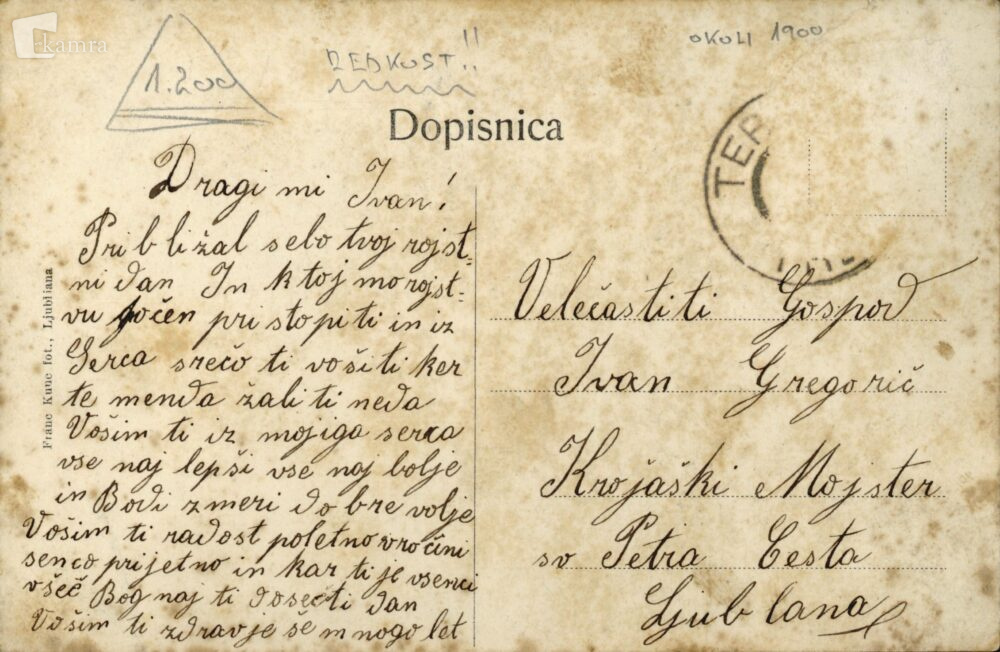 kamra
1.200
REDKOST!!
OKOLI 1900
Dopisnica
TER
Franc Kunc fot., Ljubljana
Dragi mi Ivan!
Približal se bo tvoj rojst-
ni dan In k toj mo rojst-
vu počen pri stopiti in iz
Serca srečo ti vošiti ker
te menda žaliti neda
Vošim ti iz mojiga serca
vse naj lepši vse naj bolje
in Bodi zmeri dobre volje
Vošim ti radost poletno vročini
senco prijetno in kar ti je vsenci
všeč Bog naj ti doseči dan
Vošim ti zdravje še mnogo let
Velečastiti Gospod
Ivan Gregorič
Krojaški Mojster
sv Petra Cesta
Ljublana